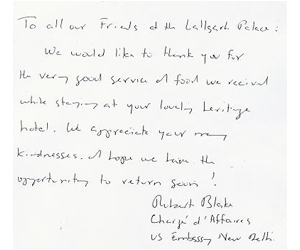 To all our Friends at the Lallgarh Palace:
We would like to thank you for
the very good service & food we received
while staying at your lovely heritage
hotel. We appreciate your many
kindnesses. & hope we have the
opportunity to return soon!
Robert Blake
Chargé d'Affaires
US Embassy New Delhi